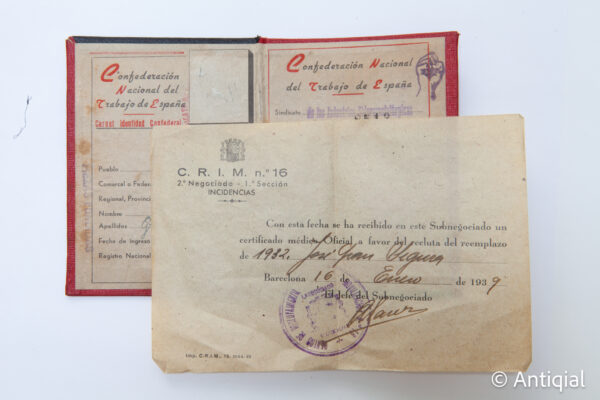 Confederación
Nacional del
Trabajo de España
Carnet Identidad Confederal
Pueblo
Comarcal o Federa
Regional, Provinci
Nombre
Apellidos
Fecha de ingreso
Registro Nacional
Confederación Nacional
del
Trabajo de España
Sindicato
C. R. I. M. n.º 16
2.º Negociado - 1.ª Sección
INCIDENCIAS
Con esta fecha se ha recibido en este Subnegociado un
certificado médico Oficial a favor del recluta del reemplazo
de 1932. José Gran Segura
Barcelona 16 de Enero de 1939
El Jefe del Subnegociado
Imp. C.R.I.M., 16.
© Antiqial